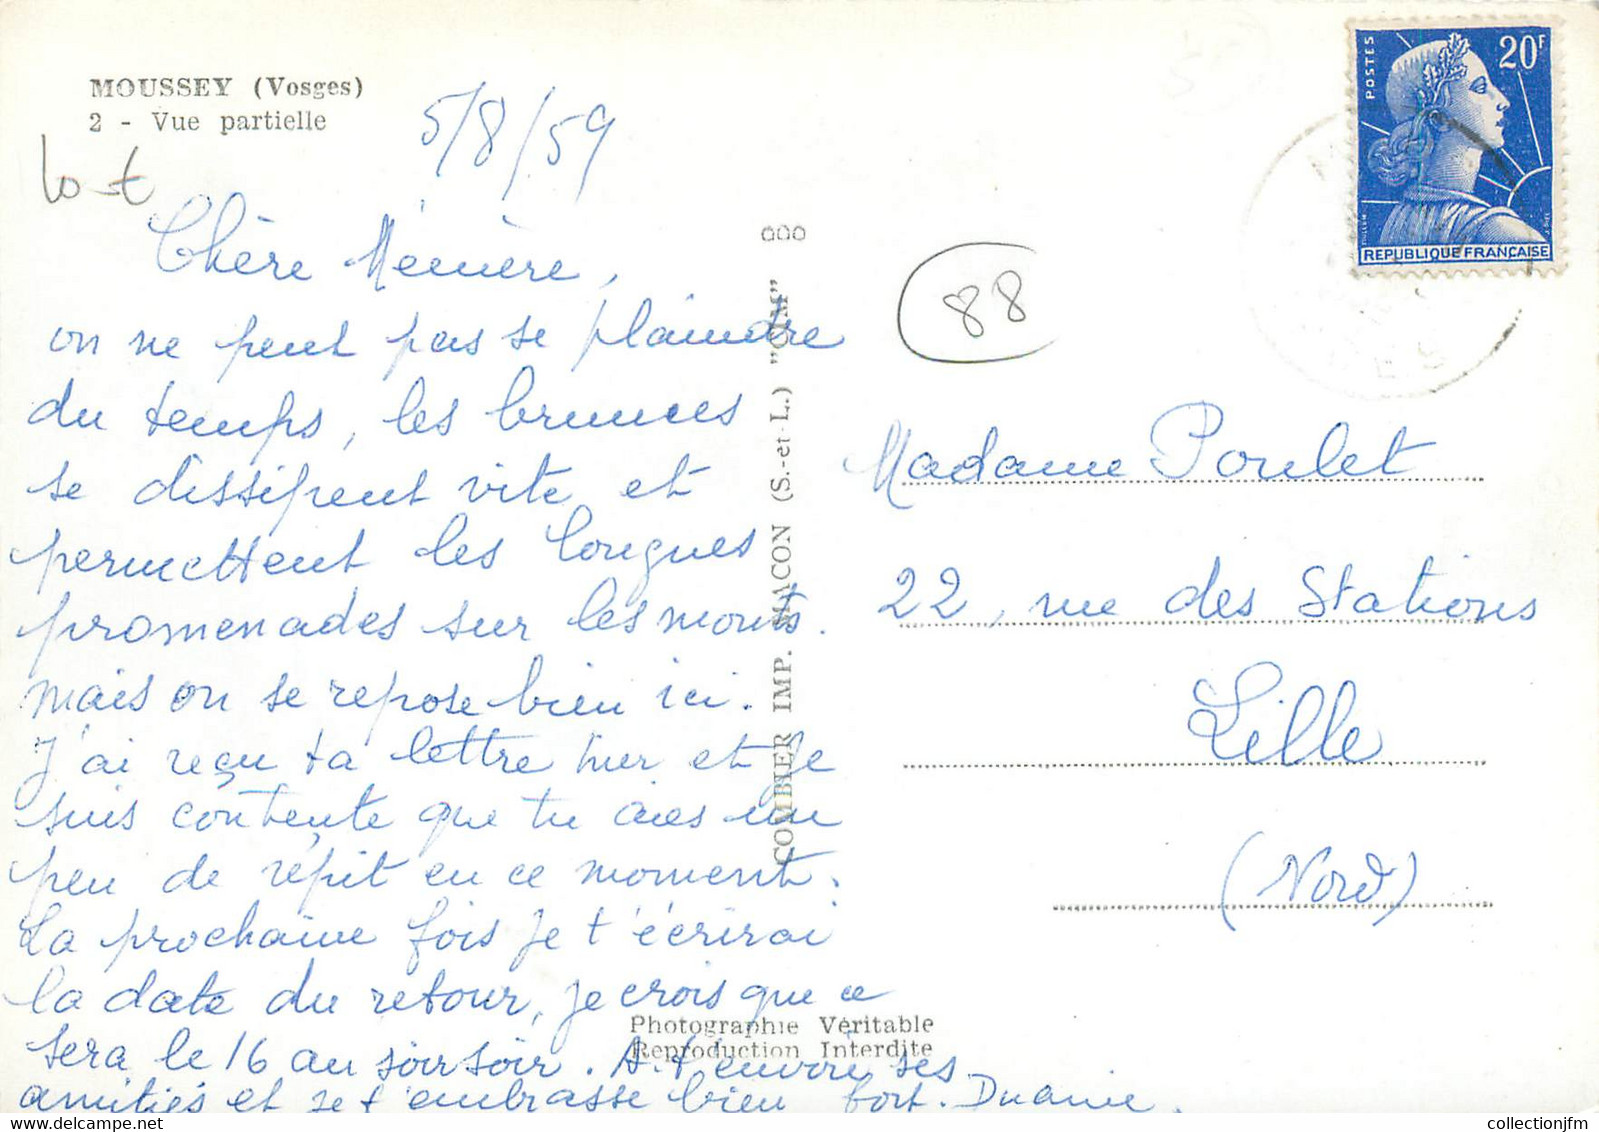 MOUSSEY (Vosges)
2 - Vue partielle
5/8/59
Chère Mémère,
on ne peut pas se plaindre
du temps, les brumes
se dissipent vite et
permettent les longues
promenades sur les monts.
mais on se repose bien ici.
J'ai reçu ta lettre hier et je
suis contente que tu aies un
peu de répit en ce moment.
La prochaine fois je t'écrirai
la date du retour, je crois que ce
sera le 16 au soir soir. A. t'envoie ses
amitiés et je t'embrasse bien fort.
COMBIER IMP. MACON (S.-et-L.) "CIM"
Photographie Véritable
Reproduction Interdite
88
POSTES
20F
REPUBLIQUE FRANÇAISE
Madame Poulet
22, rue des Stations
Lille
(Nord)
collectionjfm